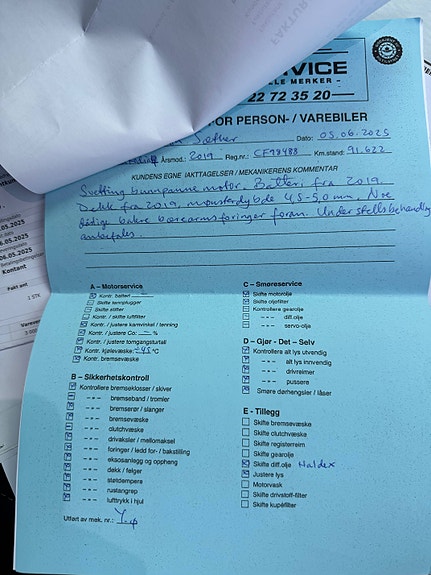 RVICE
LLE MERKER -
22 72 35 20 -
FOR PERSON- / VAREBILER
Sæther Dato: 05.06.2025
Årsmod.: 2019 Reg.nr.: CF98488 Km.stand: 91.622
KUNDENS EGNE IAKTTAGELSER / MEKANIKERENS KOMMENTAR
Svetting bunnpanne motor. Batteri fra 2019.
Dekk fra 2019, mønsterdybde 4,5-5,0 mm. Noe
dårlige bakre bærearmsforinger foran. Understellsbehandling
anbefales.
A – Motorservice
Kontr. batteri
Skifte tennplugger
Skifte stifter
Kontr. / skifte luftfilter
Kontr. / justere kamvinkel / tenning
Kontr. / justere Co: — %
Kontr. / justere tomgangsturtall
Kontr. kjølevæske: -45 °C
Kontr. bremsevæske
B – Sikkerhetskontroll
Kontrollere bremseklosser / skiver
--- bremsebånd / tromler
--- bremserør / slanger
--- bremsevæske
--- clutchvæske
--- drivaksler / mellomaksel
--- foringer / ledd for- / bakstilling
--- eksosanlegg og oppheng
--- dekk / felger
--- støtdempere
--- rustangrep
--- lufttrykk i hjul
Utført av mek. nr.:
C – Smøreservice
Skifte motorolje
Skifte oljefilter
Kontrollere gearolje
--- diff.olje
--- servo-olje
D – Gjør - Det – Selv
Kontrollere alt lys utvendig
--- alt lys innvendig
--- drivreimer
--- pussere
Smøre dørhengsler / låser
E - Tillegg
Skifte bremsevæske
Skifte clutchvæske
Skifte registerreim
Skifte gearolje
Skifte diff.olje Haldex
Justere lys
Motorvask
Skifte drivstoff-filter
Skifte kupéfilter
05.2025
06.05.2025
Kontant
Fakt ant
1 STK